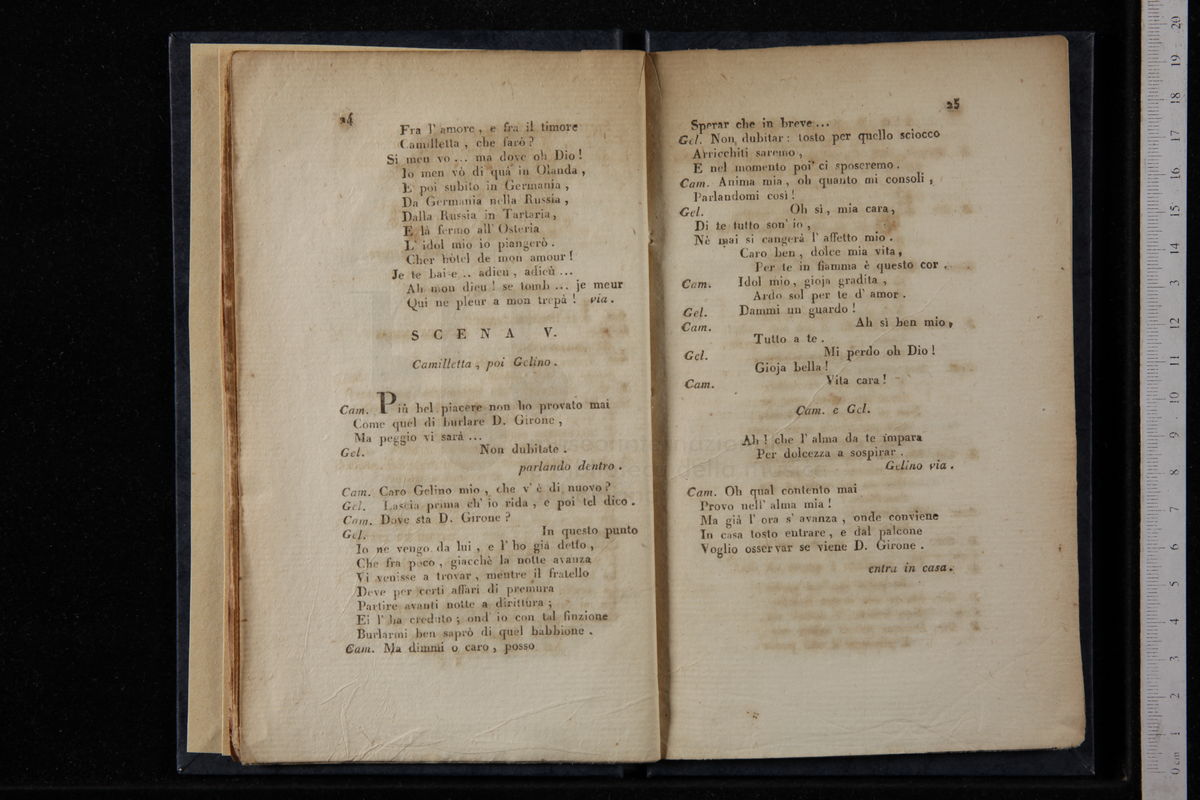 24
Fra l' amore, e fra il timore
Camilletta, che farò?
Si men vo ... ma dove oh Dio!
Io men vò di quà in Olanda,
E poi subito in Germania,
Da Germania nella Russia,
Dalla Russia in Tartaria,
E là fermo all' Osteria
L' idol mio io piangerò.
Cher hòtel de mon amour!
Je te bai e .. adieu, adieù ...
Ah mon dieu! se tomb ... je meur
Qui ne pleur a mon trepà! via.
SCENA V.
Camilletta, poi Gelino.
Cam. Più bel piacere non ho provato mai
Come quel di burlare D. Girone,
Ma peggio vi sarà ...
Gel. Non dubitate.
parlando dentro.
Cam. Caro Gelino mio, che v' è di nuovo?
Gel. Lascia prima ch' io rida, e poi tel dico.
Cam. Dove sta D. Girone?
Gel. In questo punto
Io ne vengo da lui, e l' ho già detto,
Che fra poco, giacchè la notte avanza
Vi venisse a trovar, mentre il fratello
Deve per certi affari di premura
Partire avanti notte a dirittura;
Ei l' ha creduto; ond' io con tal finzione
Burlarmi ben saprò di quel babbione.
Cam. Ma dimmi o caro, posso
25
Sperar che in breve ...
Gel. Non dubitar: tosto per quello sciocco
Arricchiti saremo,
E nel momento poi' ci sposeremo.
Cam. Anima mia, oh quanto mi consoli,
Parlandomi così!
Gel. Oh sì, mia cara,
Di te tutto son' io,
Nè mai si cangerà l' affetto mio.
Caro ben, dolce mia vita,
Per te in fiamma è questo cor.
Cam. Idol mio, gioja gradita,
Ardo sol per te d' amor.
Gel. Dammi un guardo!
Cam. Ah sì ben mio,
Tutto a te.
Gel. Mi perdo oh Dio!
Gioja bella!
Cam. Vita cara!
Cam. e Gel.
Ah! che l' alma da te impara
Per dolcezza a sospirar.
Gelino via.
Cam. Oh qual contento mai
Provo nell' alma mia!
Ma già l' ora s' avanza, onde conviene
In casa tosto entrare, e dal palcone
Voglio osservar se viene D. Girone.
entra in casa.
0 cm 1 2 3 4 5 6 7 8 9 10 11 12 13 14 15 16 17 18 19 20